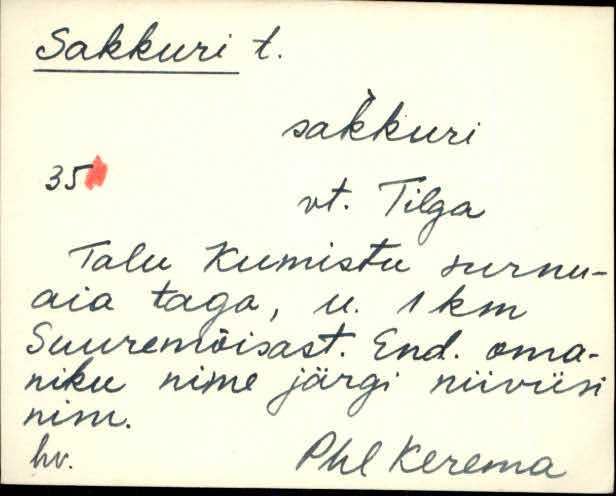 Sakkuri t.
sak̀kuri
35
vt. Tilga
Talu Kumistu surnu-
aia taga, u. 1 km
Suuremõisast. End. oma-
niku nime järgi niiviisi
nim.
hv. Phl Kerema